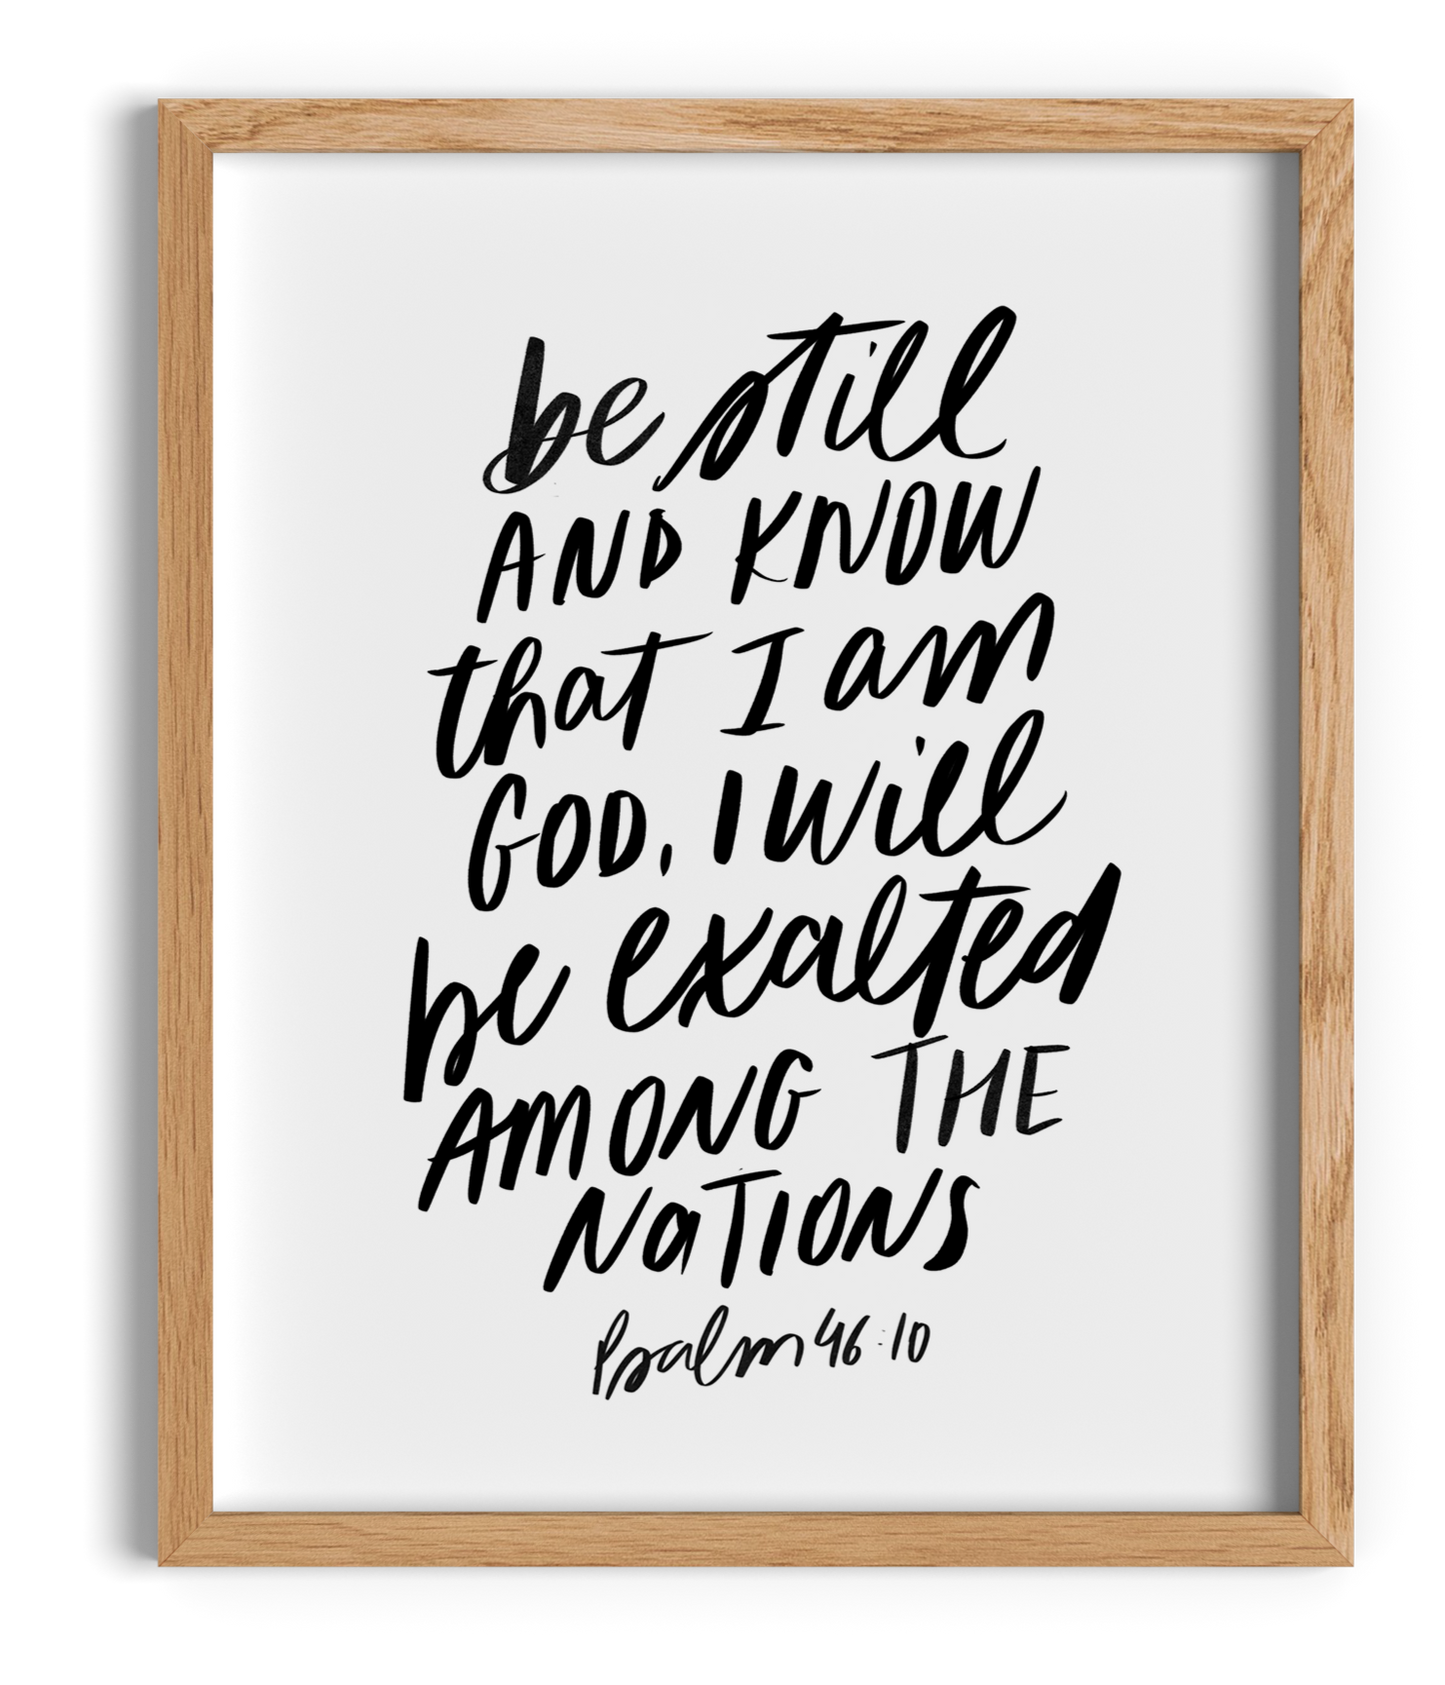 be still
AND KNOW
that I am
GOD, I will
be exalted
AMONG THE
NaTIONS
Psalm 46:10